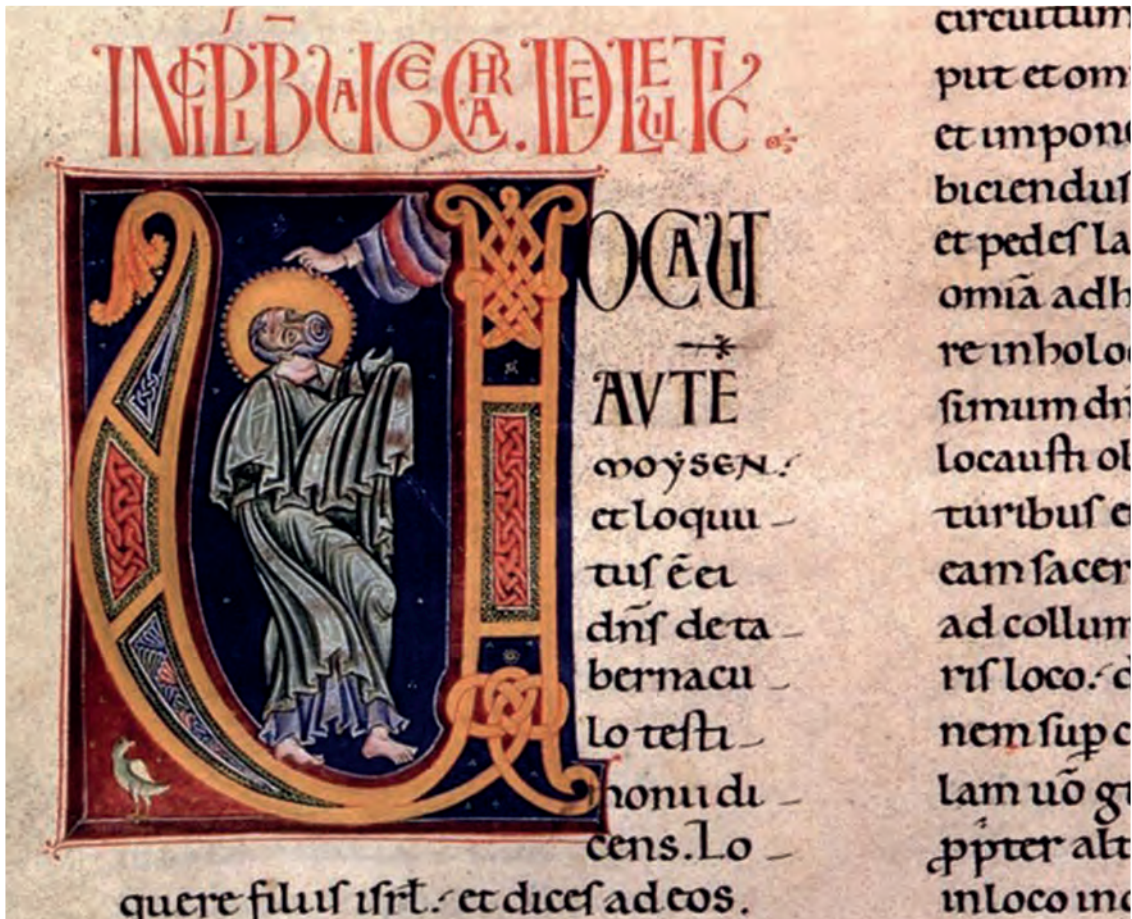 INCIPI B̄ UAIECCHRA. ID Ē LEUITIC
UOCAUIT
AVTE
moẏsen:
et loquu
tuſ ē ei
dn̄ſ de ta
bernacu
lo teſti
monii di
cens. Lo
quere filiiſ iſrł. et diceſ ad eos.
circuitum
put et om
et impon
bicienduſ
et pedeſ la
omiā adh
re in holo
ſimum dn̄
locauſti
turibuſ e
eam ſacer
ad collum
riſ loco.
nem ſup
lam uō
ppter alt
in loco